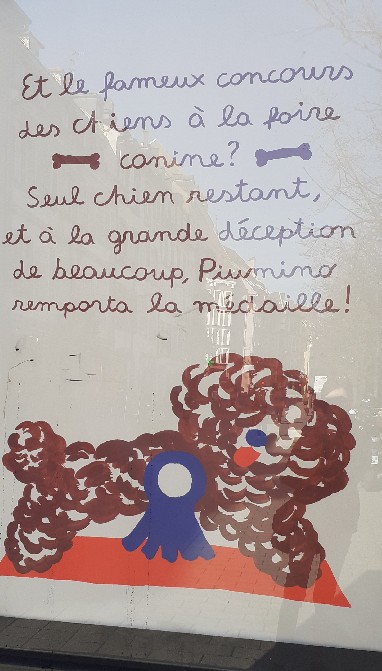 Et le fameux concours
des chiens à la foire
canine?
Seul chien restant,
et à la grande déception
de beaucoup, Piumino
remporta la médaille!